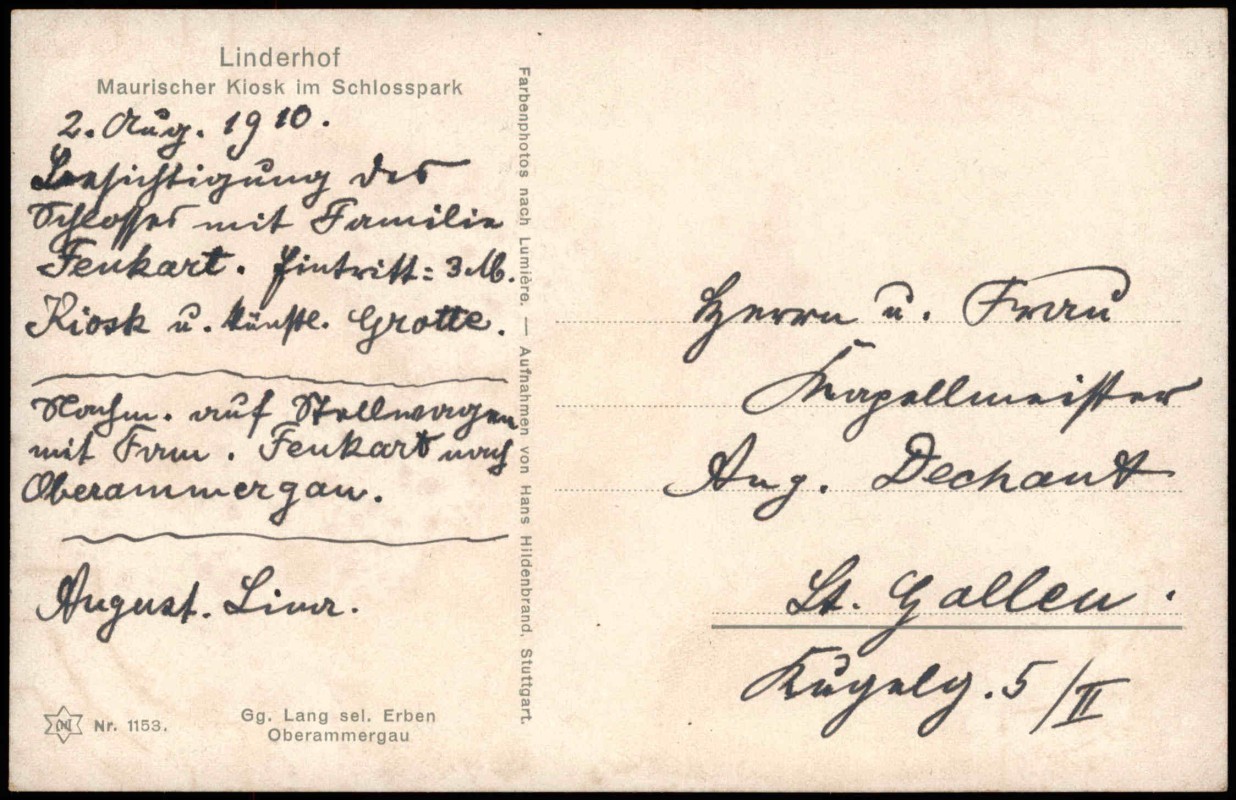 Linderhof
Maurischer Kiosk im Schlosspark
2. Aug. 1910.
Besichtigung des
Schlosses mit Familie
Fenkart. Eintritt: 3 M.
Kiosk u. künstl. Grotte.
Nachm. auf Stellwagen
mit Fam. Fenkart nach
Oberammergau.
August.
Nr. 1153.
Gg. Lang sel. Erben
Oberammergau
Farbenphotos nach Lumière. — Aufnahmen von Hans Hildenbrand, Stuttgart.
Herrn u. Frau
Kapellmeister
Aug. Dechant
St. Gallen.
Kugelg. 5/II